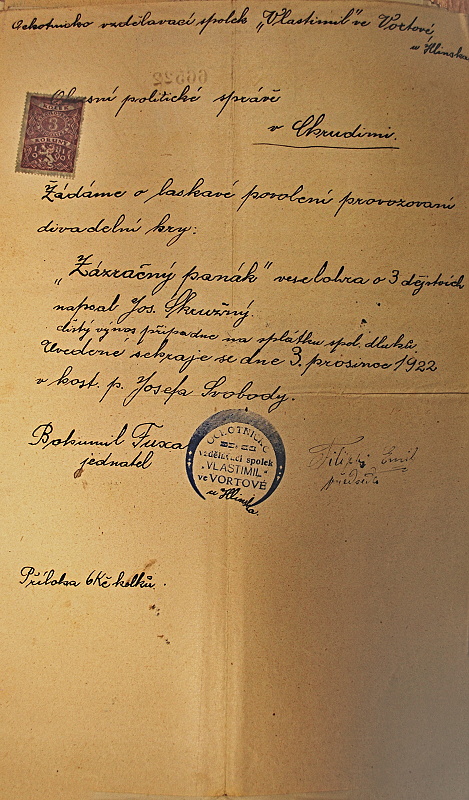 Ochotnicko vzdělavací spolek „Vlastimil" ve Vortové,
u Hlinska
66522
Okresní politické správě
KOLEK
3
KORUNY
v Chrudimi.
Žádáme o laskavé povolení provozovaní
divadelní hry:
„Zázračný panák" veselohra o 3 dějstvích
napsal Jos. Skružný.
čistý vynos připadne na splátku spol. dluhů.
Uvedené sehraje se dne 3. prosince 1922
v host. p. Josefa Svobody.
Bohumil Fuxa
jednatel
OCHOTNICKO
vzdělavací spolek
„VLASTIMIL"
ve VORTOVÉ
u Hlinska.
Filipi Emil
předseda
Příloha 6 Kč kolků.